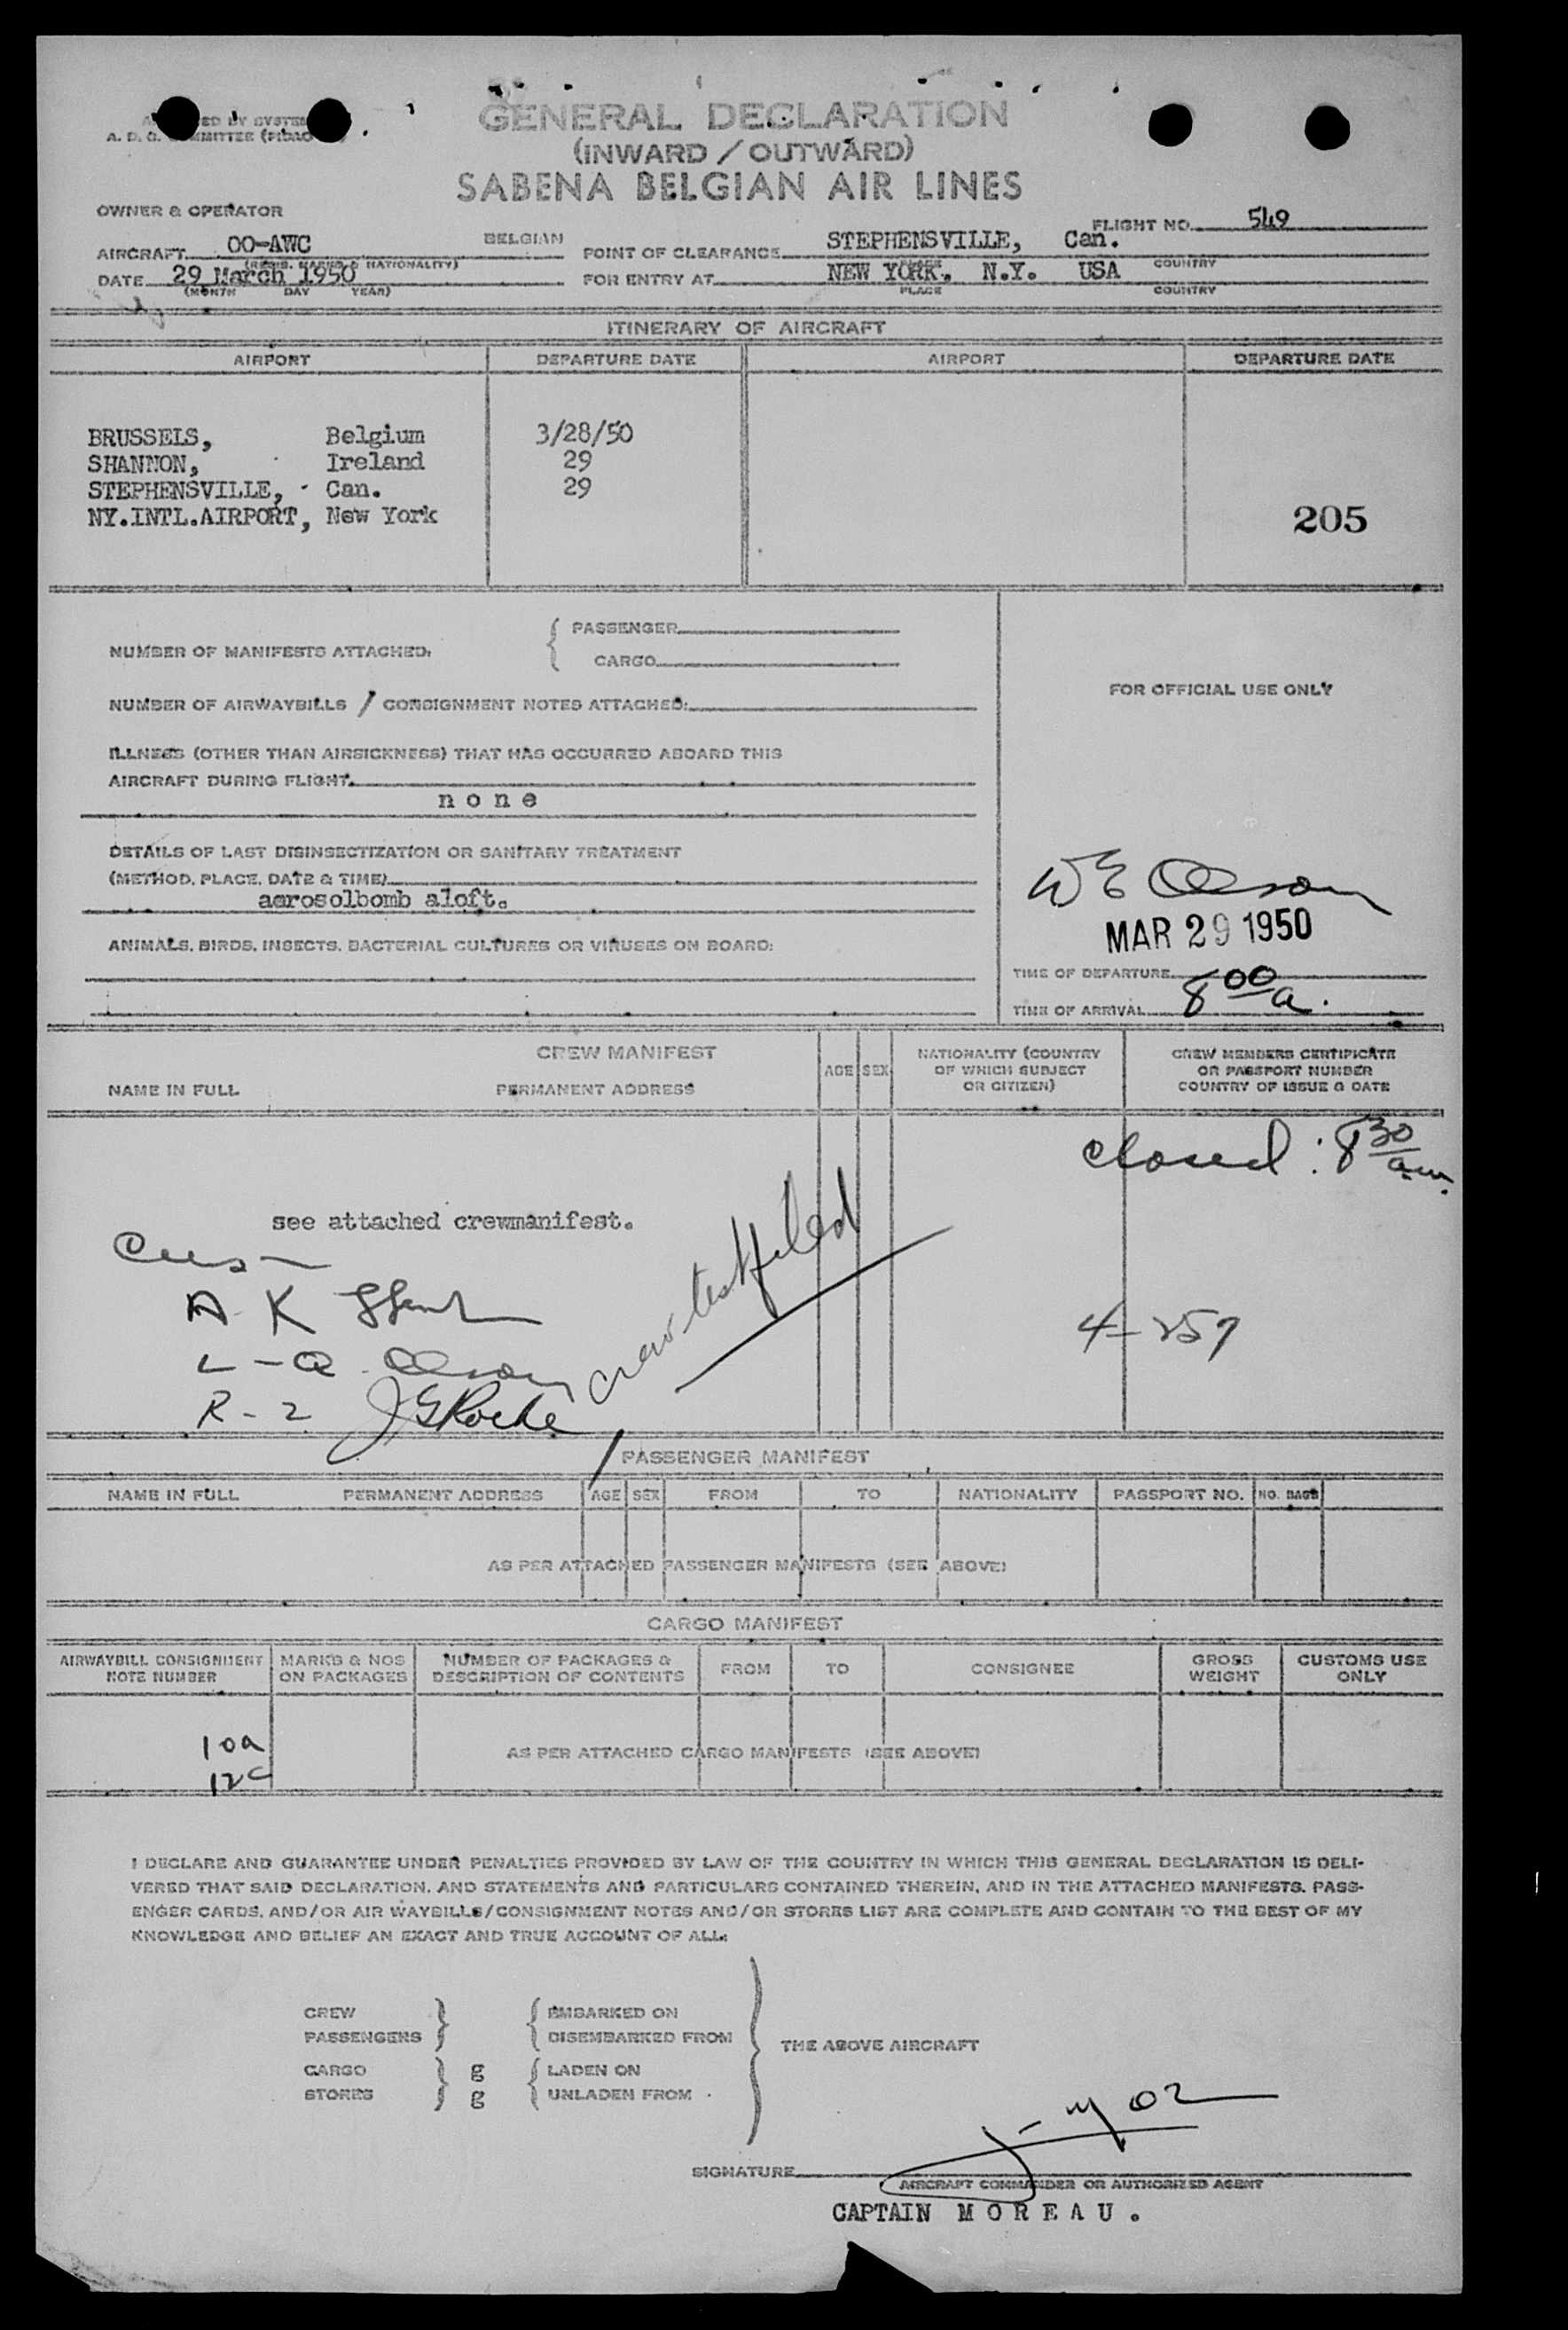 GENERAL DECLARATION
(INWARD / OUTWARD)
SABENA BELGIAN AIR LINES
A. D. G.
OWNER & OPERATOR
FLIGHT NO. 549
AIRCRAFT OO-AWC BELGIAN
(REGIS. MARKS & NATIONALITY)
POINT OF CLEARANCE STEPHENSVILLE, Can.
PLACE COUNTRY
DATE 29 March 1950
(MONTH DAY YEAR)
FOR ENTRY AT NEW YORK. N.Y. USA
PLACE COUNTRY
ITINERARY OF AIRCRAFT
AIRPORT DEPARTURE DATE AIRPORT DEPARTURE DATE
BRUSSELS, Belgium 3/28/50
SHANNON, Ireland 29
STEPHENSVILLE, Can. 29
NY.INTL.AIRPORT, New York
205
NUMBER OF MANIFESTS ATTACHED: { PASSENGER
CARGO
NUMBER OF AIRWAYBILLS / CONSIGNMENT NOTES ATTACHED:
ILLNESS (OTHER THAN AIRSICKNESS) THAT HAS OCCURRED ABOARD THIS
AIRCRAFT DURING FLIGHT.
n o n e
DETAILS OF LAST DISINSECTIZATION OR SANITARY TREATMENT
(METHOD, PLACE, DATE & TIME)
aerosolbomb aloft.
ANIMALS, BIRDS, INSECTS, BACTERIAL CULTURES OR VIRUSES ON BOARD:
FOR OFFICIAL USE ONLY
WE Olson
MAR 29 1950
TIME OF DEPARTURE
TIME OF ARRIVAL 8 00 a.
CREW MANIFEST
NAME IN FULL PERMANENT ADDRESS AGE SEX
NATIONALITY (COUNTRY
OF WHICH SUBJECT
OR CITIZEN)
CREW MEMBERS CERTIFICATE
OR PASSPORT NUMBER
COUNTRY OF ISSUE & DATE
closed : 8 30 a.m.
see attached crewmanifest.
A K
L - Q Olson
R - 2 JGRoche
4-259
PASSENGER MANIFEST
NAME IN FULL PERMANENT ADDRESS AGE SEX FROM TO NATIONALITY PASSPORT NO. NO. BAGS
AS PER ATTACHED PASSENGER MANIFESTS (SEE ABOVE)
CARGO MANIFEST
AIRWAYBILL CONSIGNMENT
NOTE NUMBER
MARKS & NOS
ON PACKAGES
NUMBER OF PACKAGES &
DESCRIPTION OF CONTENTS
FROM TO CONSIGNEE
GROSS
WEIGHT
CUSTOMS USE
ONLY
10a
12c
AS PER ATTACHED CARGO MANIFESTS (SEE ABOVE)
I DECLARE AND GUARANTEE UNDER PENALTIES PROVIDED BY LAW OF THE COUNTRY IN WHICH THIS GENERAL DECLARATION IS DELI-
VERED THAT SAID DECLARATION, AND STATEMENTS AND PARTICULARS CONTAINED THEREIN, AND IN THE ATTACHED MANIFESTS, PASS-
ENGER CARDS, AND/OR AIR WAYBILLS/CONSIGNMENT NOTES AND/OR STORES LIST ARE COMPLETE AND CONTAIN TO THE BEST OF MY
KNOWLEDGE AND BELIEF AN EXACT AND TRUE ACCOUNT OF ALL:
CREW EMBARKED ON
PASSENGERS DISEMBARKED FROM
THE ABOVE AIRCRAFT
CARGO g LADEN ON
STORES g UNLADEN FROM
SIGNATURE
AIRCRAFT COMMANDER OR AUTHORIZED AGENT
CAPTAIN M O R E A U .